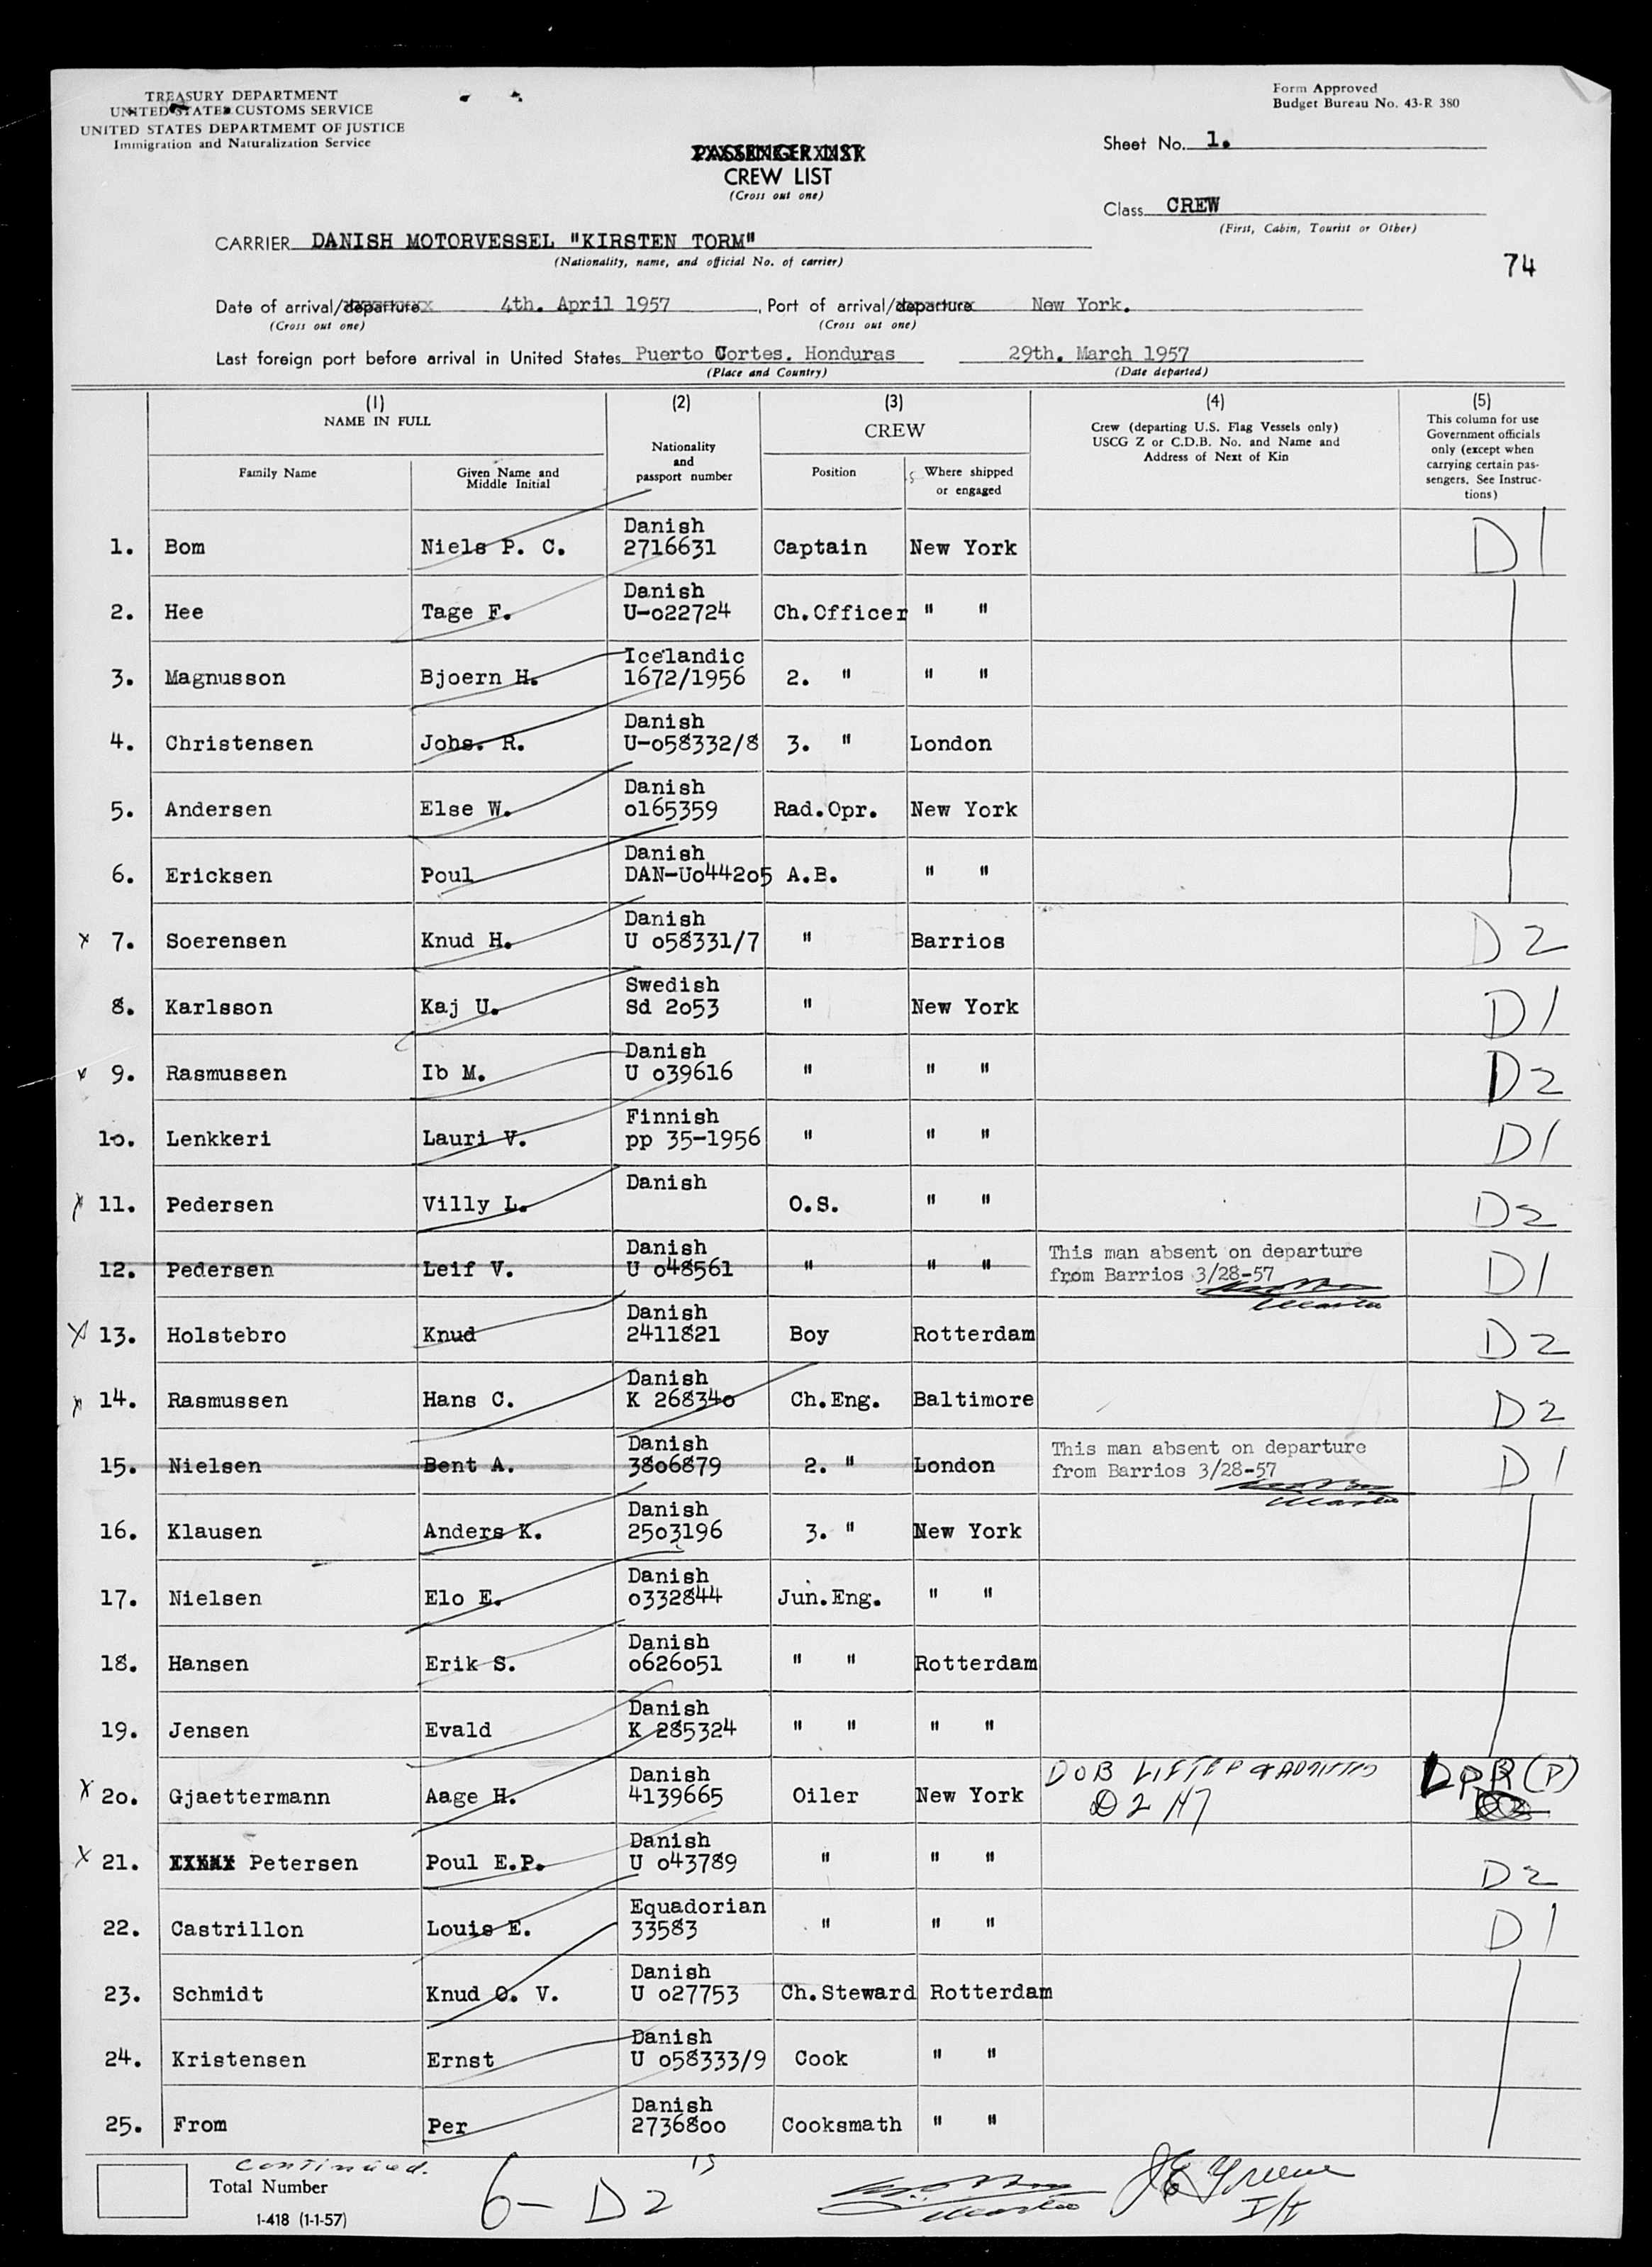 TREASURY DEPARTMENT
UNITED STATES CUSTOMS SERVICE
UNITED STATES DEPARTMEMT OF JUSTICE
Immigration and Naturalization Service
Form Approved
Budget Bureau No. 43-R 380
Sheet No. 1.
PASSENGER LIST
CREW LIST
(Cross out one)
Class CREW
(First, Cabin, Tourist or Other)
CARRIER DANISH MOTORVESSEL "KIRSTEN TORM"
(Nationality, name, and official No. of carrier)
74
Date of arrival/departure 4th. April 1957, Port of arrival/departure New York.
(Cross out one) (Cross out one)
Last foreign port before arrival in United States Puerto Cortes. Honduras 29th. March 1957
(Place and Country) (Date departed)
(1) (2) (3) (4) (5)
NAME IN FULL
Family Name
Given Name and
Middle Initial
Nationality
and
passport number
CREW
Position
Where shipped
or engaged
Crew (departing U.S. Flag Vessels only)
USCG Z or C.D.B. No. and Name and
Address of Next of Kin
This column for use
Government officials
only (except when
carrying certain pas-
sengers. See Instruc-
tions)
Danish
1. Bom Niels P. C. 2716631 Captain New York D1
Danish
2. Hee Tage F. U-o22724 Ch.Officer " "
Icelandic
3. Magnusson Bjoern H. 1672/1956 2. " " "
Danish
4. Christensen Johs. R. U-o58332/8 3. " London
Danish
5. Andersen Else W. o165359 Rad.Opr. New York
Danish
6. Ericksen Poul DAN-Uo442o5 A.B. " "
Danish
x 7. Soerensen Knud H. U o58331/7 " Barrios D2
Swedish
8. Karlsson Kaj U. Sd 2o53 " New York D1
Danish
x 9. Rasmussen Ib M. U o39616 " " " D2
Finnish
1o. Lenkkeri Lauri V. pp 35-1956 " " " D1
Danish
x 11. Pedersen Villy L. O.S. " " D2
Danish This man absent on departure
12. Pedersen Leif V. U o48561 " " " from Barrios 3/28-57 D1
Master
Danish
x 13. Holstebro Knud 2411821 Boy Rotterdam D2
Danish
x 14. Rasmussen Hans C. K 26834o Ch.Eng. Baltimore D2
Danish This man absent on departure
15. Nielsen Bent A. 38o6879 2. " London from Barrios 3/28-57 D1
Master
Danish
16. Klausen Anders K. 25o3196 3. " New York
Danish
17. Nielsen Elo E. o332844 Jun.Eng. " "
Danish
18. Hansen Erik S. o626o51 " " Rotterdam
Danish
19. Jensen Evald K 285324 " " " "
Danish DOB LIFTED & ADMITTED
x 2o. Gjaettermann Aage H. 4139665 Oiler New York D2 DPB(P)
Danish
x 21. Petersen Poul E.P. U o43789 " " " D2
Equadorian
22. Castrillon Louis E. 33583 " " " D1
Danish
23. Schmidt Knud O. V. U o27753 Ch.Steward Rotterdam
Danish
24. Kristensen Ernst U o58333/9 Cook " "
Danish
25. From Per 27368oo Cooksmath " "
Continued.
Total Number
6- D2
Master
J E Greene
I/I
I-418 (1-1-57)